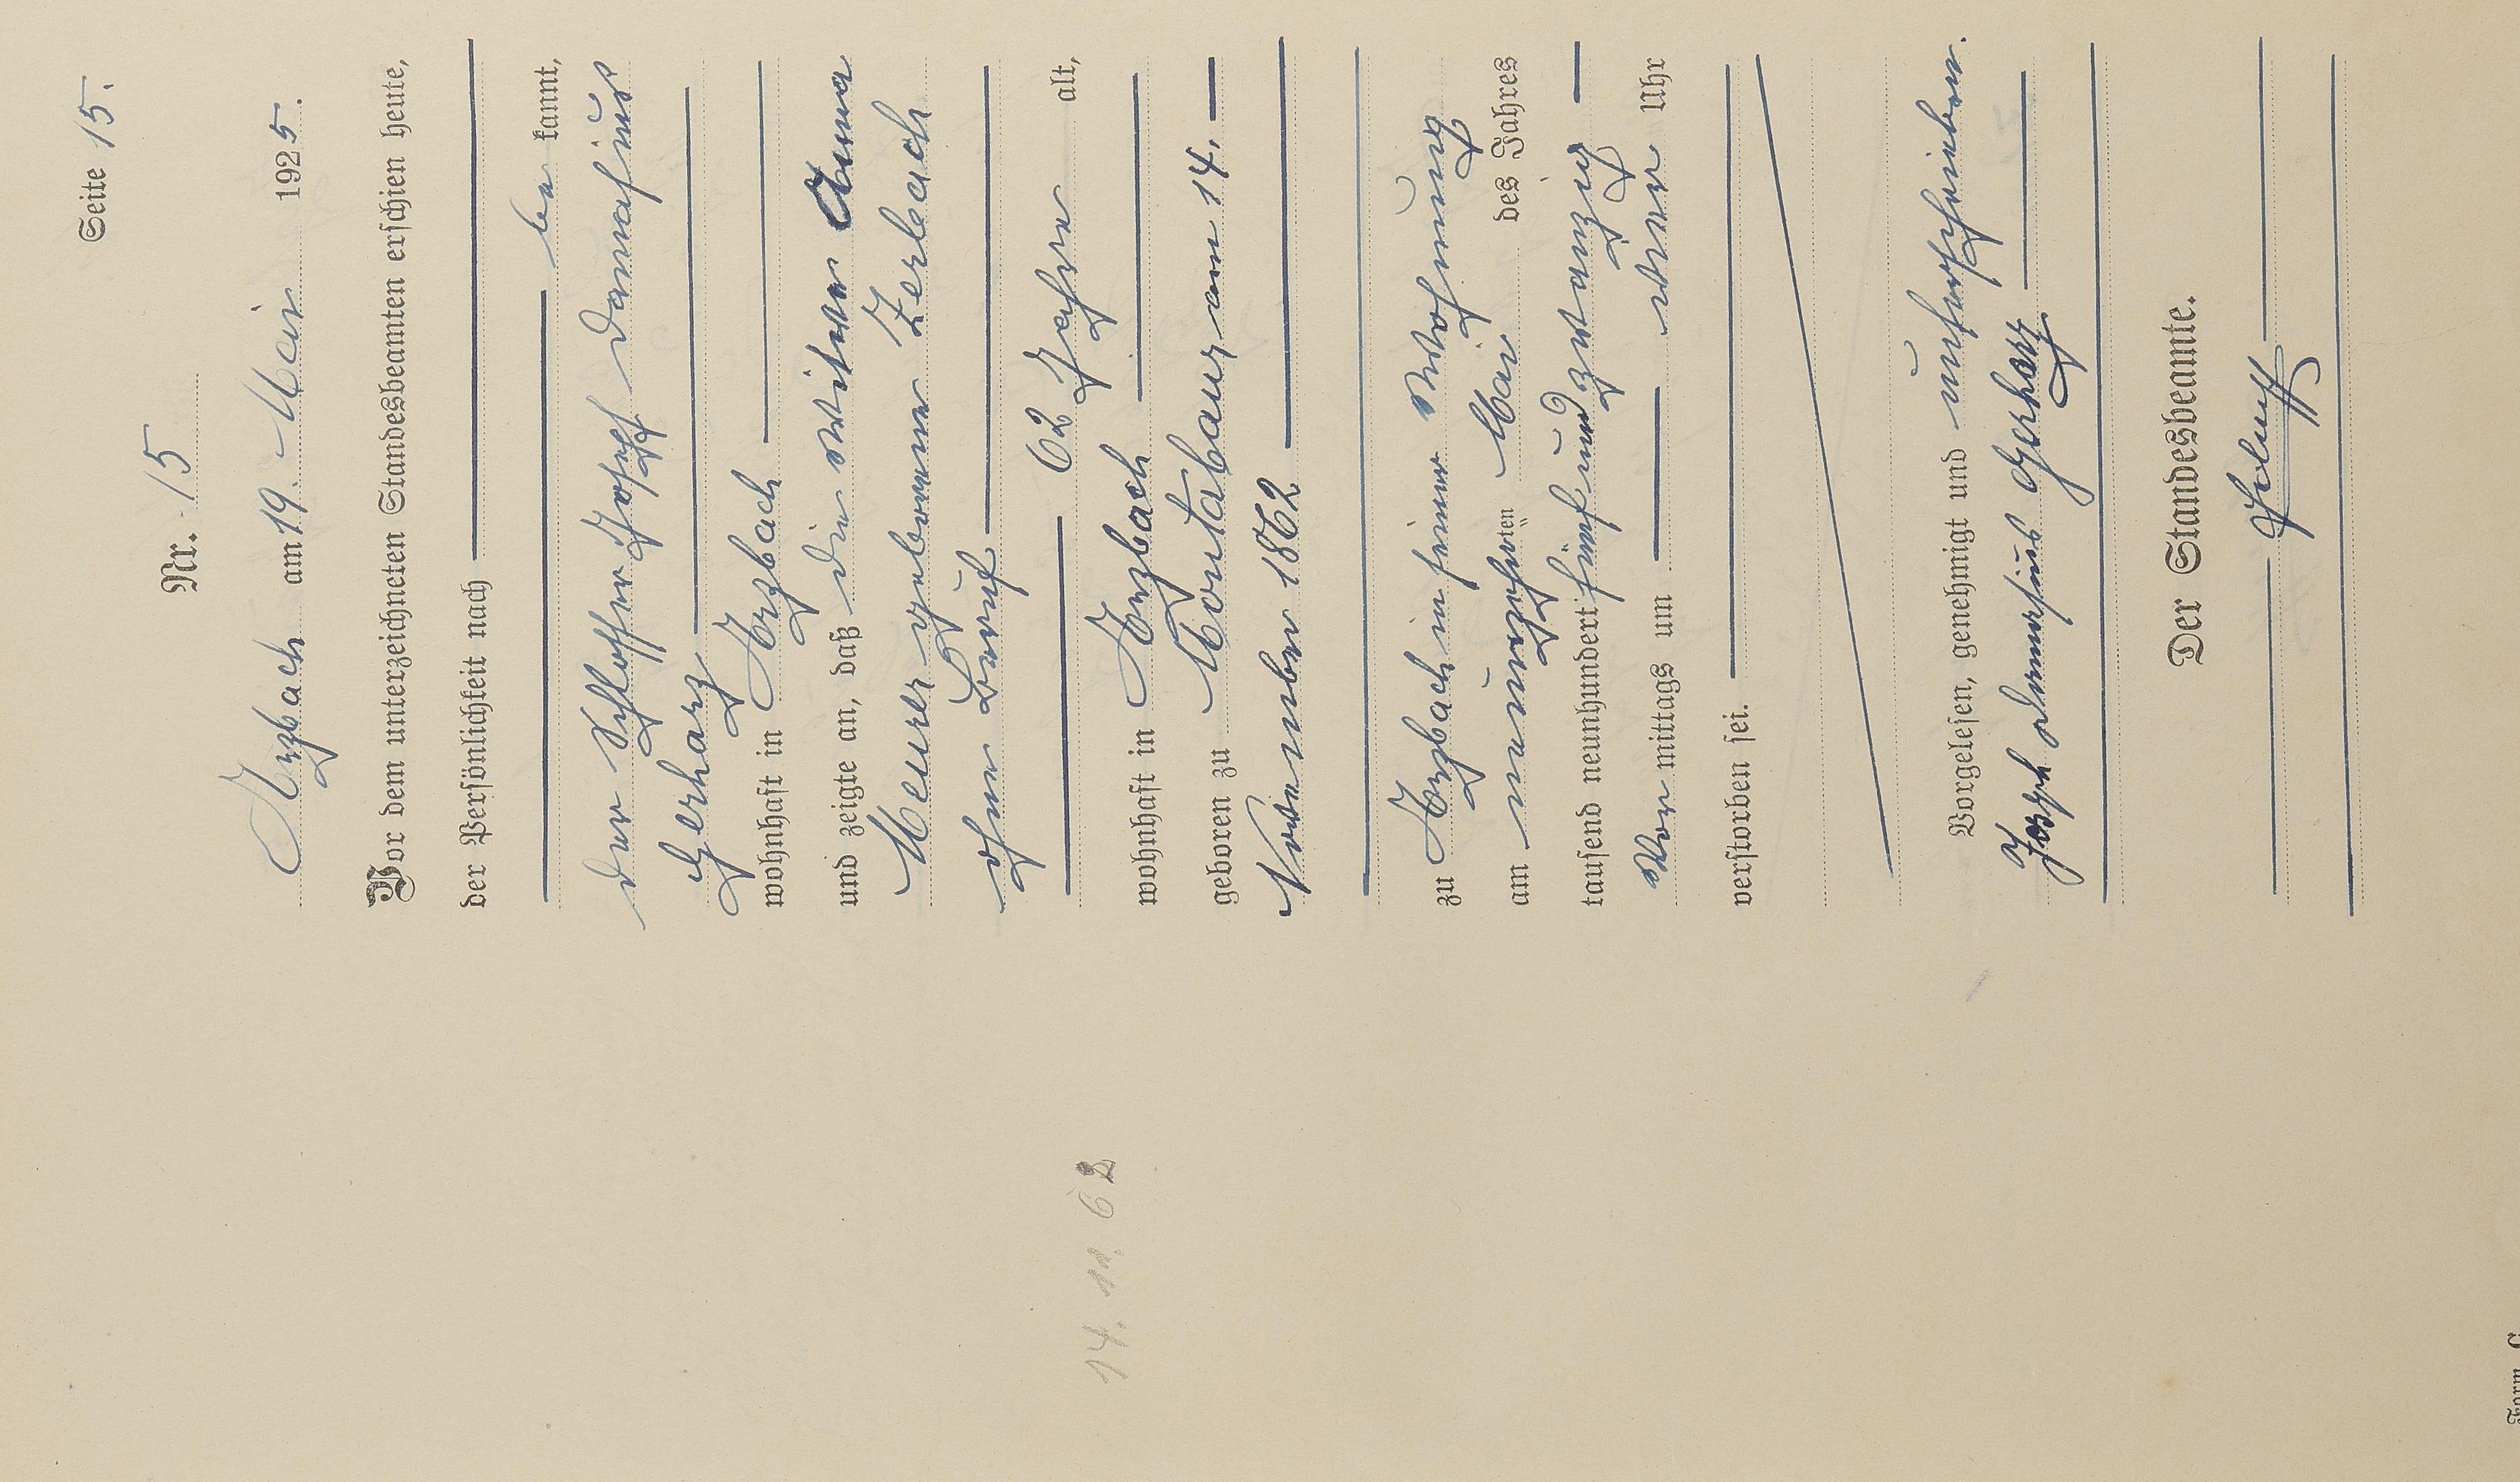 Seite 15.
Nr. 15
Arzbach am 19. Mai 1925.
Vor dem unterzeichneten Standesbeamten erschien heute,
der Persönlichkeit nach
be kannt,
der Schlosser Joseph Damasius
Gerharz
wohnhaft in Arzbach
und zeigte an, daß die Witwe Anna
Meurer geborene Zerbach
ohne Beruf
62 Jahre alt,
wohnhaft in Arzbach
geboren zu Montabaur am 14.
November 1862
zu Arzbach in seiner Wohnung
am neunzehnten Mai des Jahres
tausend neunhundert fünfundzwanzig
Vor mittags um vier Uhr
verstorben sei.
Vorgelesen, genehmigt und unterschrieben.
Joseph Damasius Gerharz
Der Standesbeamte.
14. 11. 62
Form. C